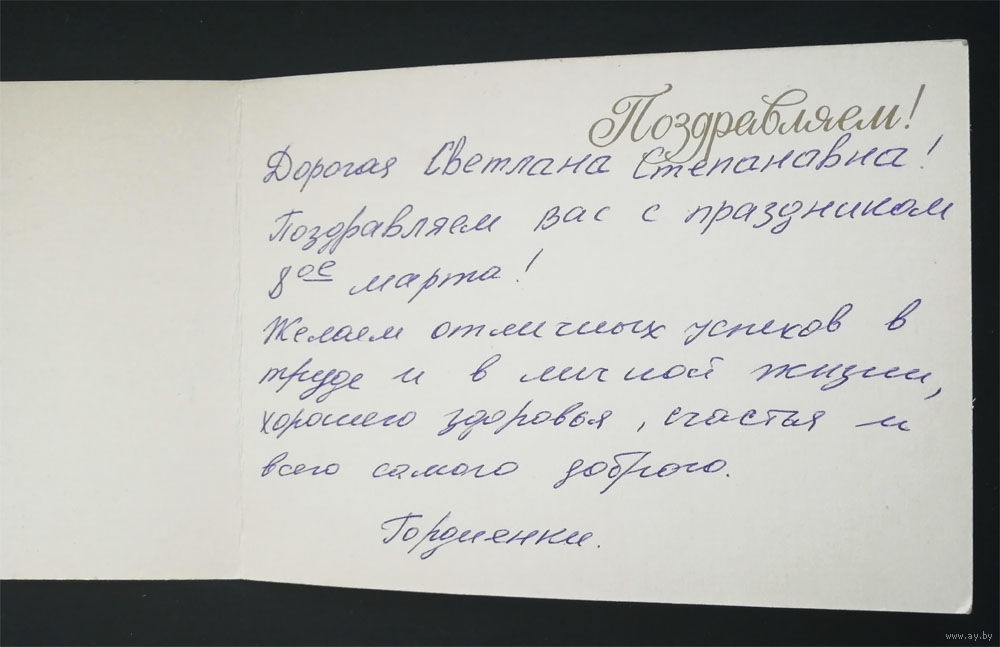 Поздравляем!
Дорогая Светлана Степанавна!
Поздравляем вас с праздником
8ое марта!
Желаем отличных успехов в
труде и в личной жизни,
хорошего здоровья, счастья и
всего самого доброго.
Гордиенки.
www.ay.by